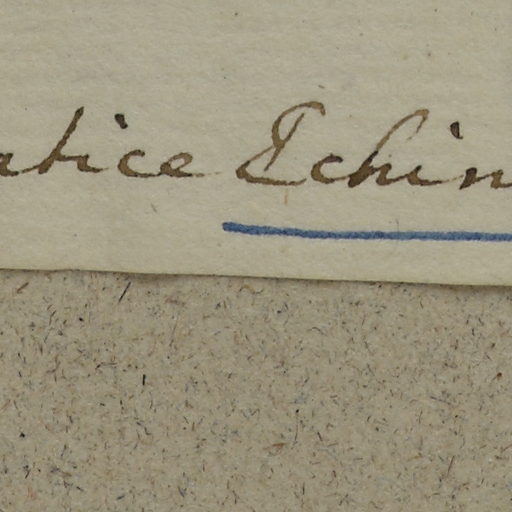 atice Echin